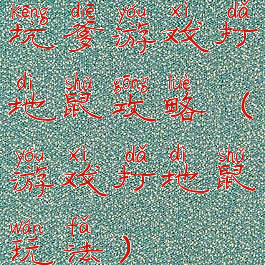 kēng diē yóu xì dǎ
坑爹游戏打
dì shǔ gōng lüè
地鼠攻略（
yóu xì dǎ dì shǔ
游戏打地鼠
wán fǎ
玩法）